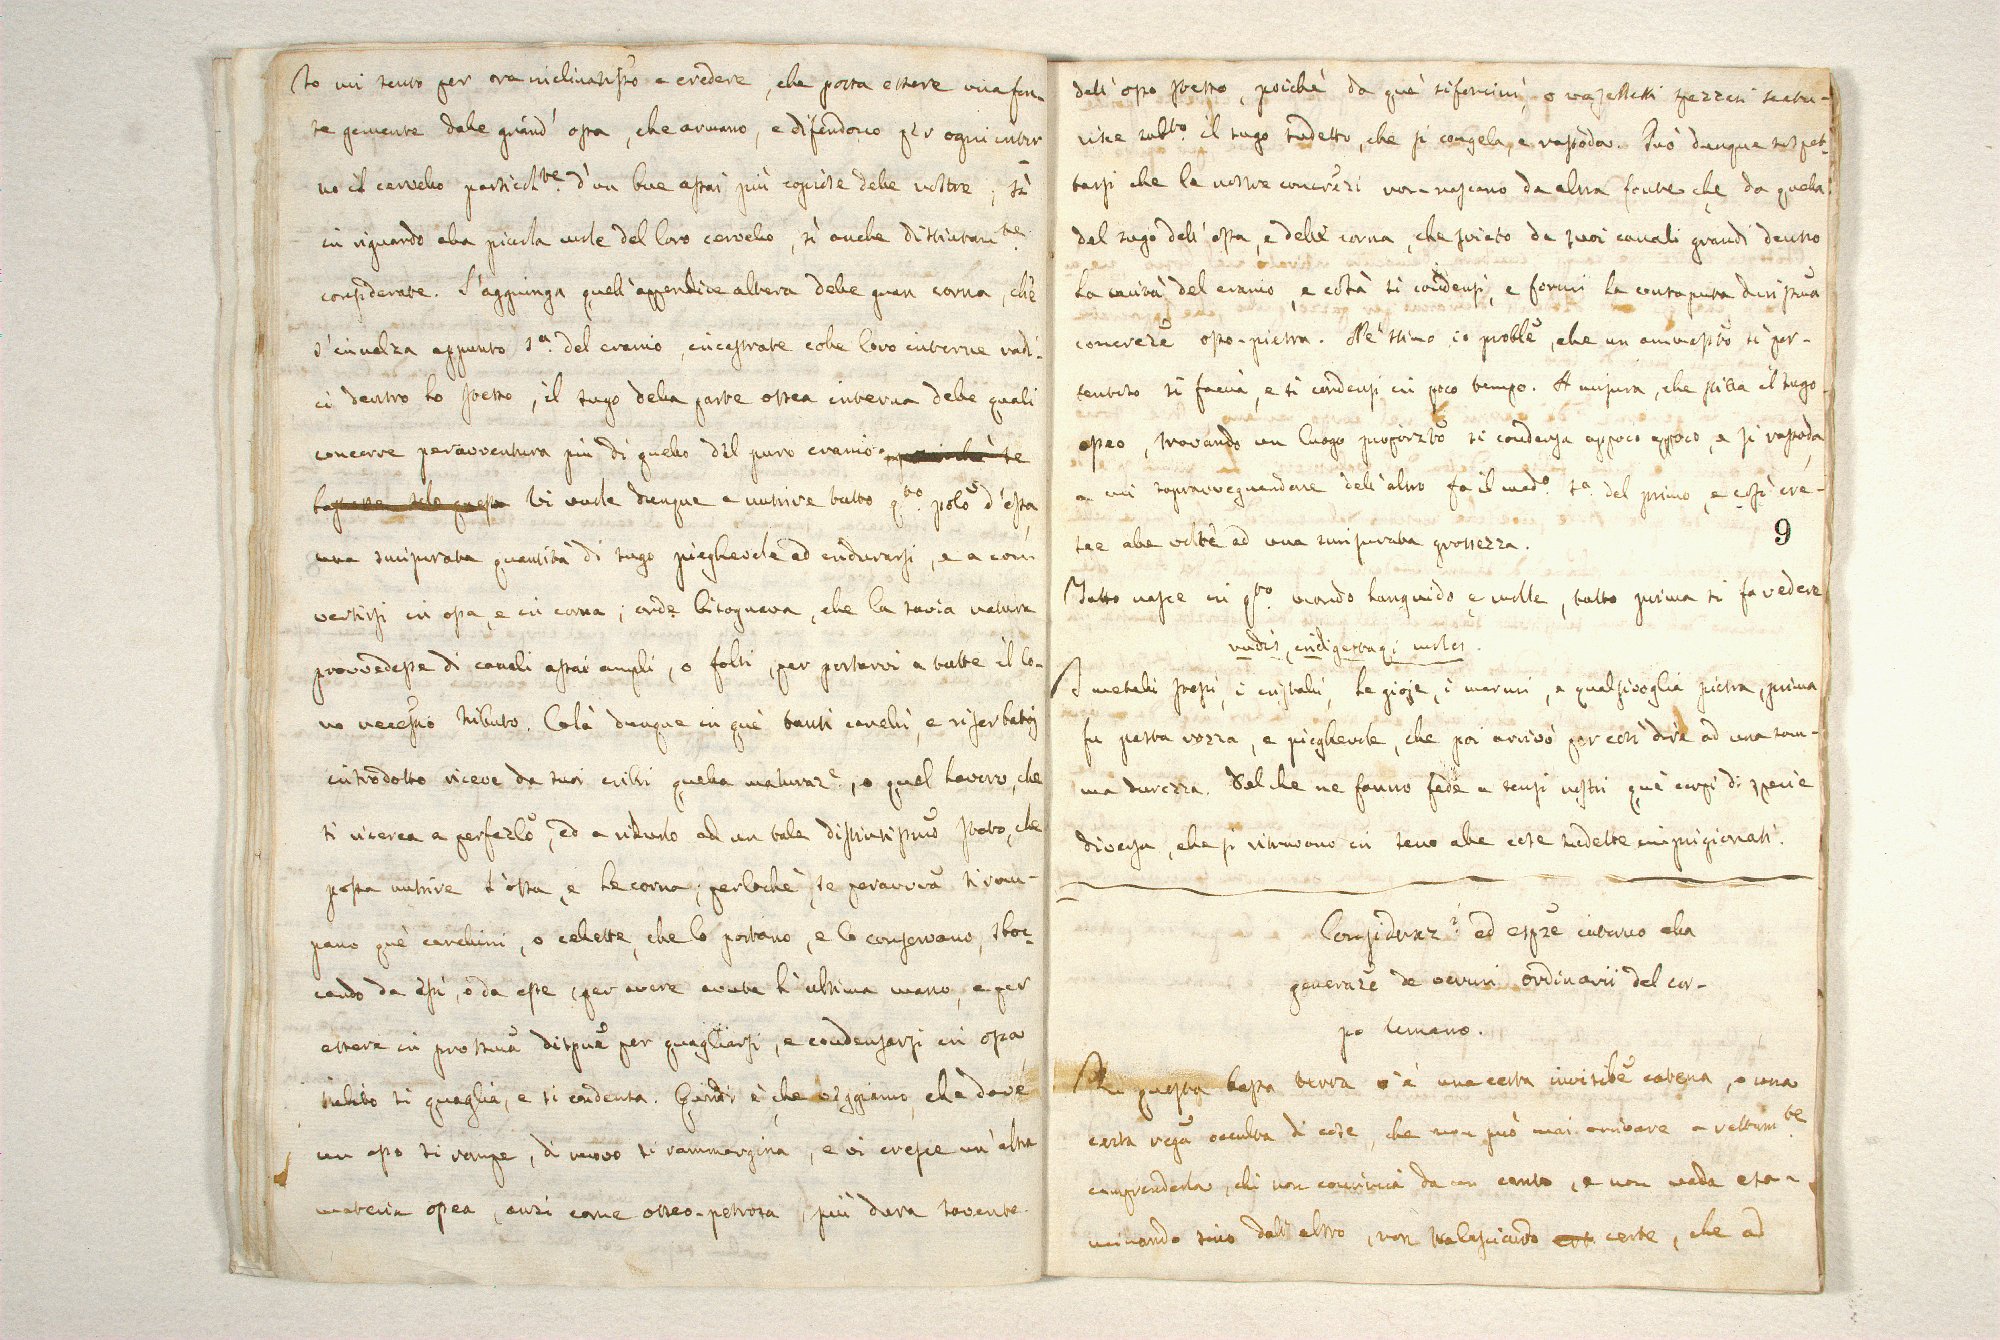 Io mi sento per ora inclinatiss.o a credere, che possa essere una fon-
te gemente dalle grand' ossa, che armano, e difendono per ogni intor
no il cervello particolr.te d'un bue assai più copiose delle nostre, sì
in riguardo alla picola mole del loro cervello, sì anche distintam.te
considerate. S'aggiunga quell'appendice altera delle gran corna, che
s'inalza appunto s.a del cranio, incastrate colle loro interne radi-
ci dentro lo stesso, il sugo della parte ossea interna delle quali
concorre peravventura più di quello del puro cranio.
Vi vuole dunque a nutrire tutto q.to d'ossa,
una smisurata quantità di sugo pieghevole ad indurarsi, e a con
vertirsi in ossa, e in corna; onde bisognava, che la savia natura
provvedesse di canali assai ampli, o folti, per portarvi a tutte il lo-
ro necess.o tributo. Colà dunque in què tanti canali, e riserbatoj
introdotto riceve da suoi cribri quella maturaz.e, o quel lavoro, che
si ricerca a perfez.lo, ed a ridurlo ad un tale distintissimo stato, che
possa nutrire l'ossa, e le corna; perlochè, se peravv.a si rom-
pano què canalini, o cellette, che lo portano, e lo conservano, sboc-
cando da essi, o da esse, per avere avuta l'ultima mano, e per
essere in prossima dispoz.e per quagliarsi, e condensarsi in ossa
subito si quaglia, e si condensa. Quindi è che veggiamo, che dove
un osso si rompe, di nuovo si rammargina, e vi cresce un'altra
materia ossea, anzi come osseo-petrosa, più dura sovente
dell'osso stesso, poichè da què siforcini, o vasselletti spezzati scatu-
risce sub.to il sugo sudetto, che si congela, e rassoda. Può dunque sospet-
tarsi che le nostre concrez.i non nascano da altra fonte che da quella
del sugo dell'ossa, e delle corna, che uscito da suoi canali grondi dentro
la cavità del cranio, e colà si condensi, e formi la
concrez.e osso-pietra. Nè stimo io probl.e, che un ammasso sì por-
tentoso si faccia, e si condensi in poco tempo. A misura, che stilla il sugo
osseo, trovando un luogo proporz.to si condensa appoco appoco, e si rassoda,
e nel sopravvegnendone dell'altro fa il med.o s.a del primo, e così cre-
sce alle volte ad una smisurata grossezza.
9
Tutto nasce in q.to mondo languido e molle, tutto prima si fa vedere
rudis, indigestaq; moles.
I metalli stessi, i cristalli, le gioje, i marmi, e qualsivoglia pietra, prima
fu pasta rozza, e pieghevole, che poi arrivò per così dire ad una som-
ma durezza. Del che ne fanno fede a sensi nostri què corpi di specie
diversa, che si ritrovano in seno alle cose sudette imprigionati.
Consideraz.i ed espz.e intorno alla
generaz.e de vermi ordinarii del cor-
po umano.
In questa bassa terra v'è una certa invisibile catena, o una
certa reg.a occulta di cose, che non può mai arrivare a rettam.te
comprenderla, chi non comincia da un canto, e non vada esa-
minando sino dall'altro, non tralasciando certe, che ad